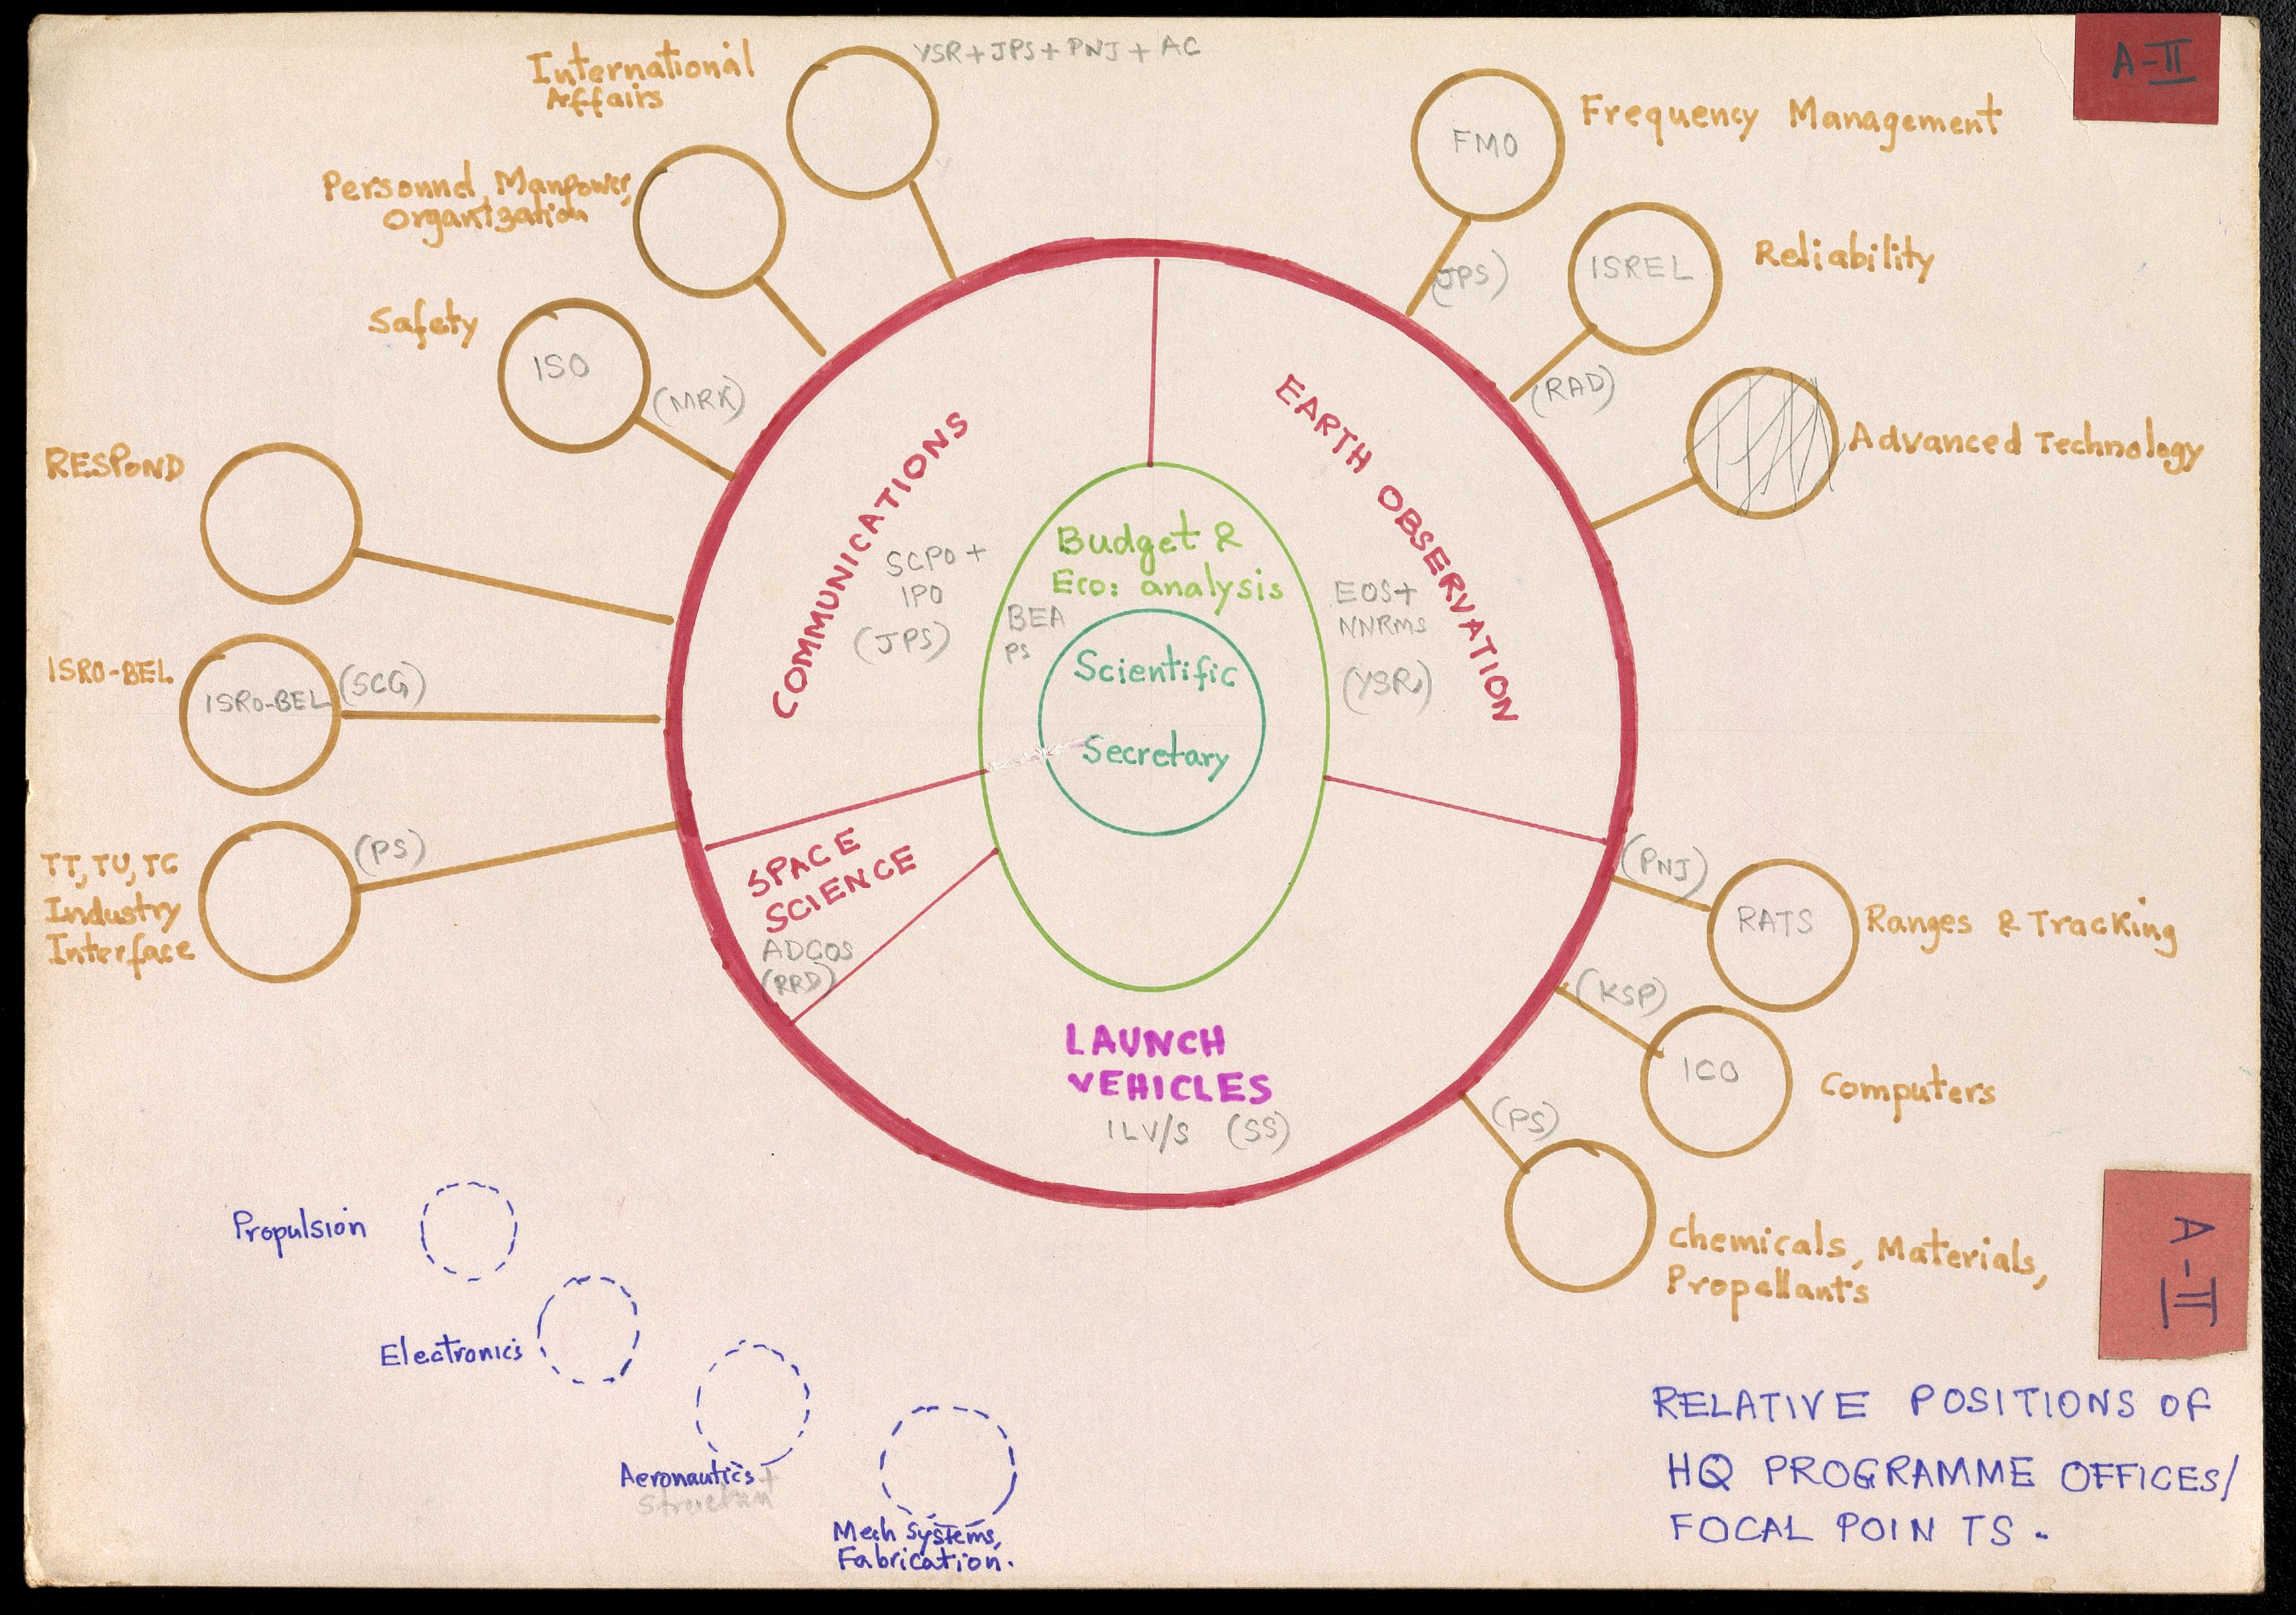 A-II
International
Affairs
YSR + JPS + PNJ + AC
FMO
Frequency Management
(JPS)
Personnel, Manpower,
Organization
ISREL
Reliability
(RAD)
Safety
ISO
(MRK)
Advanced Technology
RESPOND
ISRO-BEL
ISRO-BEL
(SCG)
TT, TU, TC
Industry
Interface
(PS)
COMMUNICATIONS
SCPO +
IPO
(JPS)
EARTH OBSERVATION
EOS+
NNRMS
(YSR)
Budget &
Eco: analysis
BEA
PS
Scientific
Secretary
SPACE
SCIENCE
ADCOS
(RRD)
LAUNCH
VEHICLES
ILV/S (SS)
(PNJ)
RATS
Ranges & Tracking
(KSP)
ICO
Computers
(PS)
Chemicals, Materials,
Propellants
A-II
Propulsion
Electronics
Aeronautics +
Mech Systems,
Fabrication.
RELATIVE POSITIONS OF
HQ PROGRAMME OFFICES/
FOCAL POINTS -